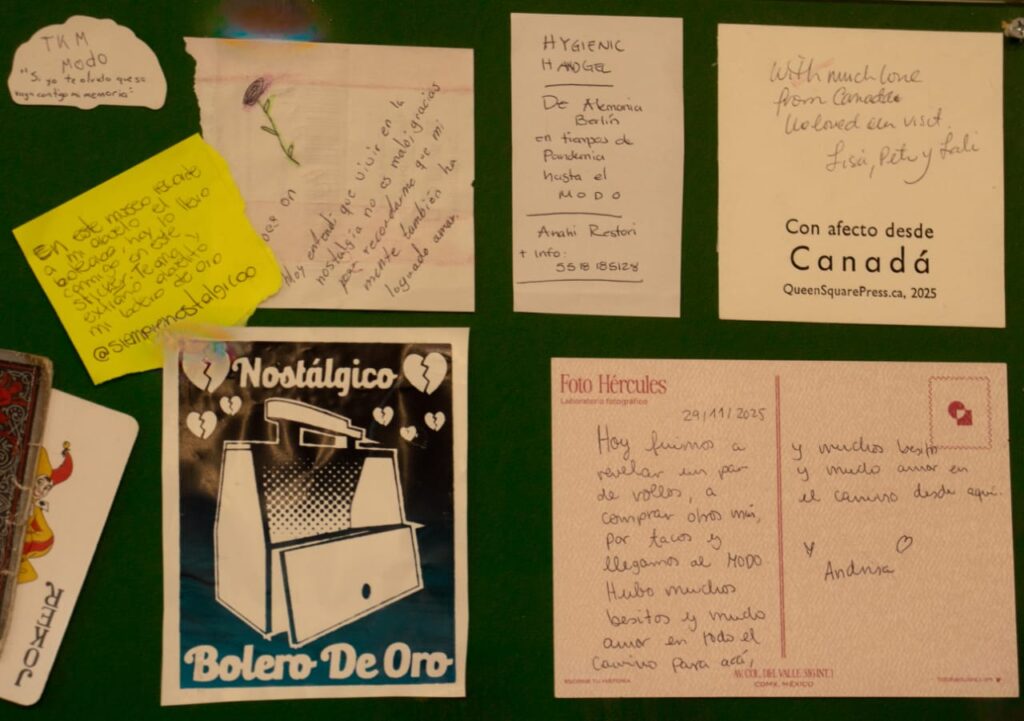 TKM
Modo
"Si yo te olvido que se
vaya contigo mi memoria"
En este museo
a mi abuelo el
boleador, hoy lo llevo
conmigo en este
sticker. Te amo y
extraño abuelito
mi bolero de oro
@siemprenostalgicoo
Hoy entendí que vivir en la
nostalgia no es malo, gracias
por recordarme que mi
mente también ha
logrado amar
HYGIENIC
HANDGEL
De Alemania
Berlín
en tiempos de
Pandemia
hasta el
MODO
Anahi Restori
+ Info:
5518185128
With much love
from Canada.
We loved our visit.
Lisa, Pete y Lali
Con afecto desde
Canadá
QueenSquarePress.ca, 2025
JOKER
Nostálgico
Bolero De Oro
Foto Hércules
Laboratorio fotográfico
29/11/2025
Hoy fuimos a
revelar un par
de rollos, a
comprar otros más,
por tacos y
llegamos al MODO
Hubo muchos
besitos y mucho
amor en todo el
camino para acá,
y muchos besitos
y mucho amor en
el camino desde aquí.
Andrea
ESCRIBE TU HISTORIA
AV. COL. DEL VALLE
CDMX, MÉXICO